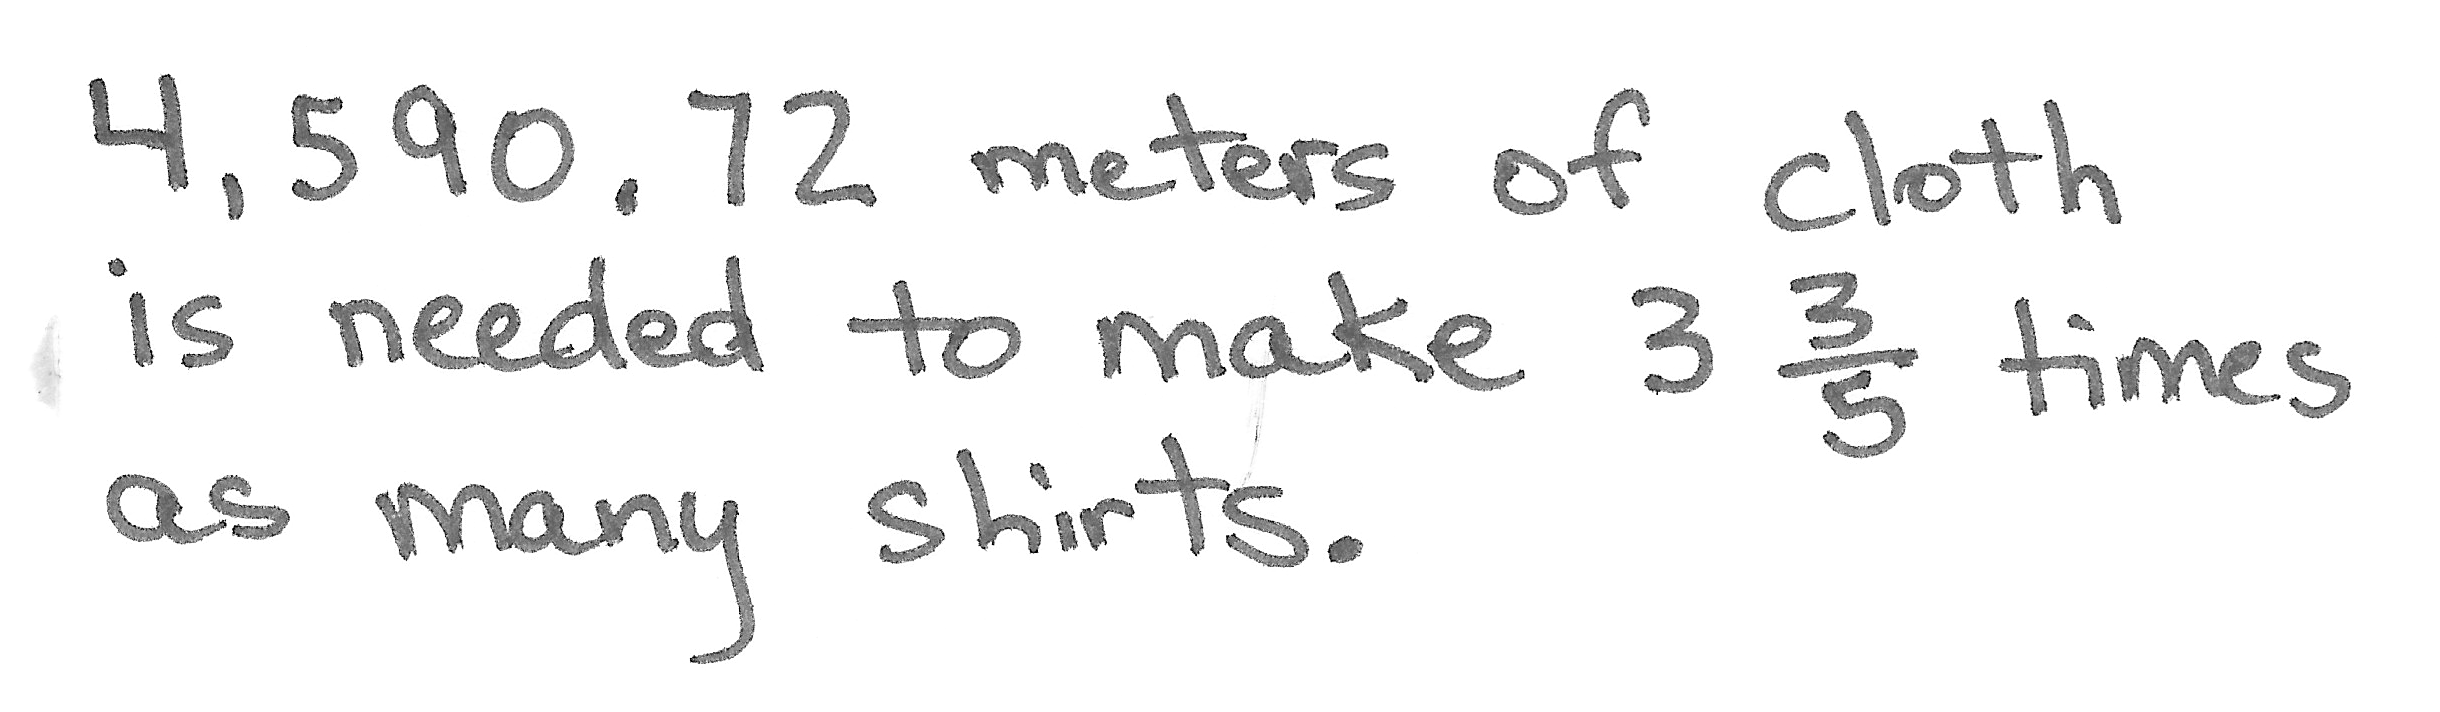 4,590.72 meters of cloth
is needed to make 3 3/5 times
as many shirts.